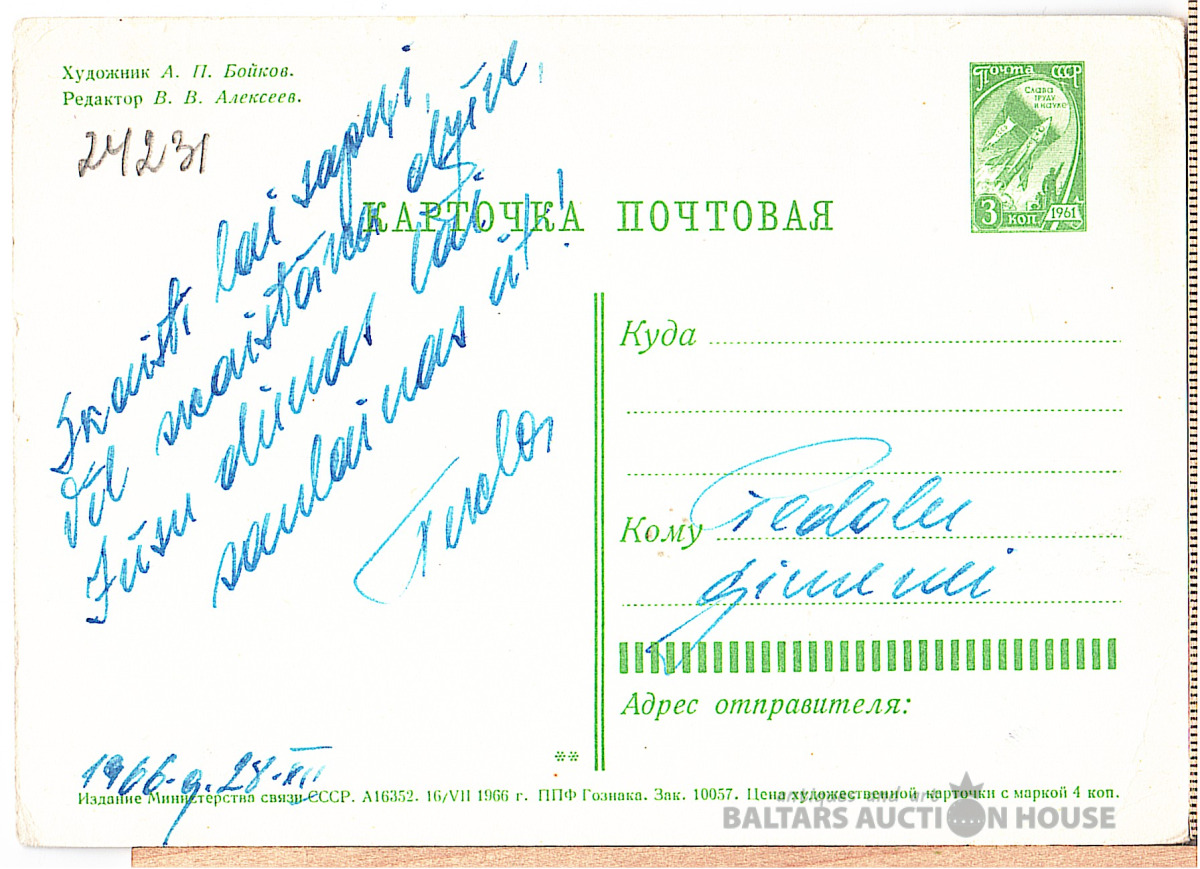 Художник А. П. Бойков.
Редактор В. В. Алексеев.
24231
Почта СССР
Слава
труду
и науке
3 коп 1961
КАРТОЧКА ПОЧТОВАЯ
Skaisti lai sapņi,
Vēl skaistāka dzīve,
Jūsu dienas lai
saulainas it!
Куда
Кому
ģimenei
Адрес отправителя:
1966.g. 28.XII
**
Издание Министерства связи СССР. А16352. 16/VII 1966 г. ППФ Гознака. Зак. 10057. Цена художественной карточки с маркой 4 коп.
antiques and art
BALTARS AUCTION HOUSE